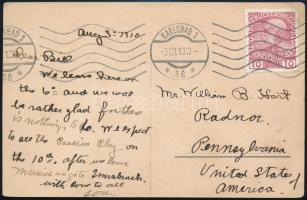 Aug 3rd 1910
Dear Bill
We leave here on
the 6th and we will
be rather glad for there
is nothing to do. We expect
to see the Passion Play on
the 10th, after we leave
Munich we go to Innsbruck.
with love to all
Tom
KARLSBAD 1
* 5g *
10 10
Mr William B. Hart
Radnor
Pennsylvania
United States of
America